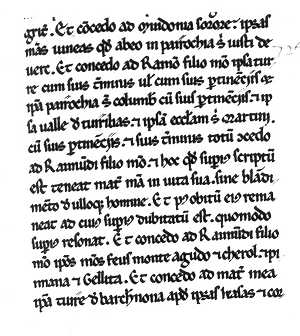 grie. Et cõcedo ad Mindonia sorore. ipsas
mãs vineas qd̃ abeo in parrochia s̃ iusti de
uere. Et concedo ad Ramõ filio mõ ipsa tur
re cum suis t̃minis ul' cum suis p̃tinẽciis
ipã parrochia s̃ columb cũ suis p̃tinẽciis. ip
sa ualle d̃ turribas. ipsã eccl'am s̃ martinj.
cũ suis p̃tinẽciis. suis t̃minis totũ ɔcedo
ad Raimũdi filio mõ. hoc qd̃ supi9 scriptũ
est teneat mat̃ mã in uita sua. sine bladi
mẽto d̃ ulloq homine. Et p9 obitũ ei9 rema
neat ad cui9 supi9 dubitatũ est. quomodo
supi9 resonat. Et concedo ad Raimũdi filio
mõ ipõs mõs feus monte agudo cherol. pi
nnana Gellita. Et concedo ad mat̃ mea
ipã turre d̃ barchinona apd̃ ipsas casas cor